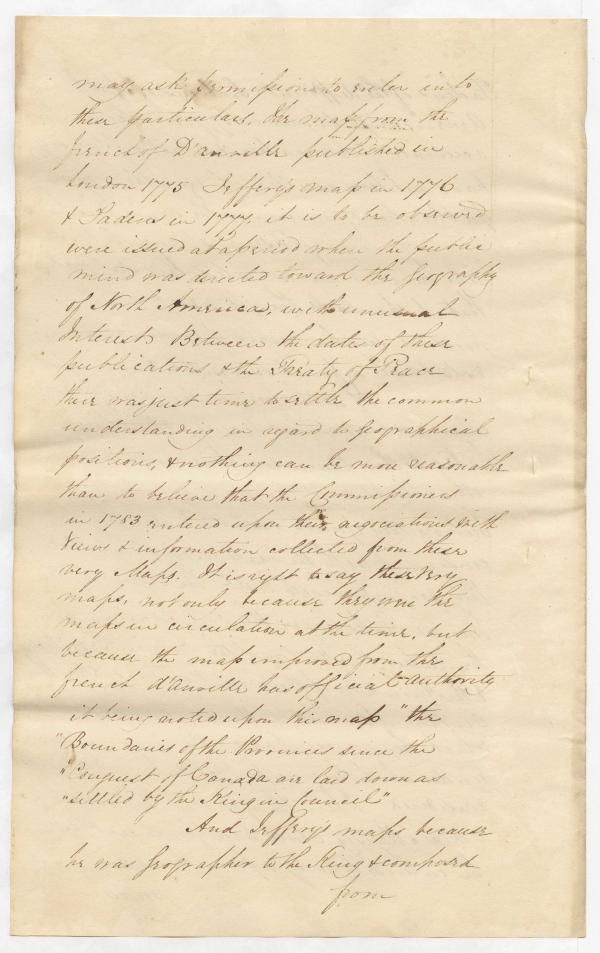 may ask permission to enter into
these particulars, the map from the
french of D'anville published in
London 1775 Jeffery's map in 1776
& Fadens in 1777, it is to be observed
were issued at a period when the public
mind was directed toward the Geography
of North America, with unusual
Interest. Between the dates of these
publications & the Treaty of Peace
there was just time to settle the common
understanding in regard to Geographical
positions, & nothing can be more reasonable
than to believe that the Commissioners
in 1783 entered upon their negociations with
Views & information collected from these
very Maps. It is right to say these very
maps, not only because they were the
maps in circulation at the time, but
because the map improved from the
french d'Anville has official authority
it being noted upon this map "the
"Boundaries of the Provinces since the
"Conquest of Canada are laid down as
"settled by the King in Council"
And Jeffery's maps because
he was Geographer to the King & composed
from